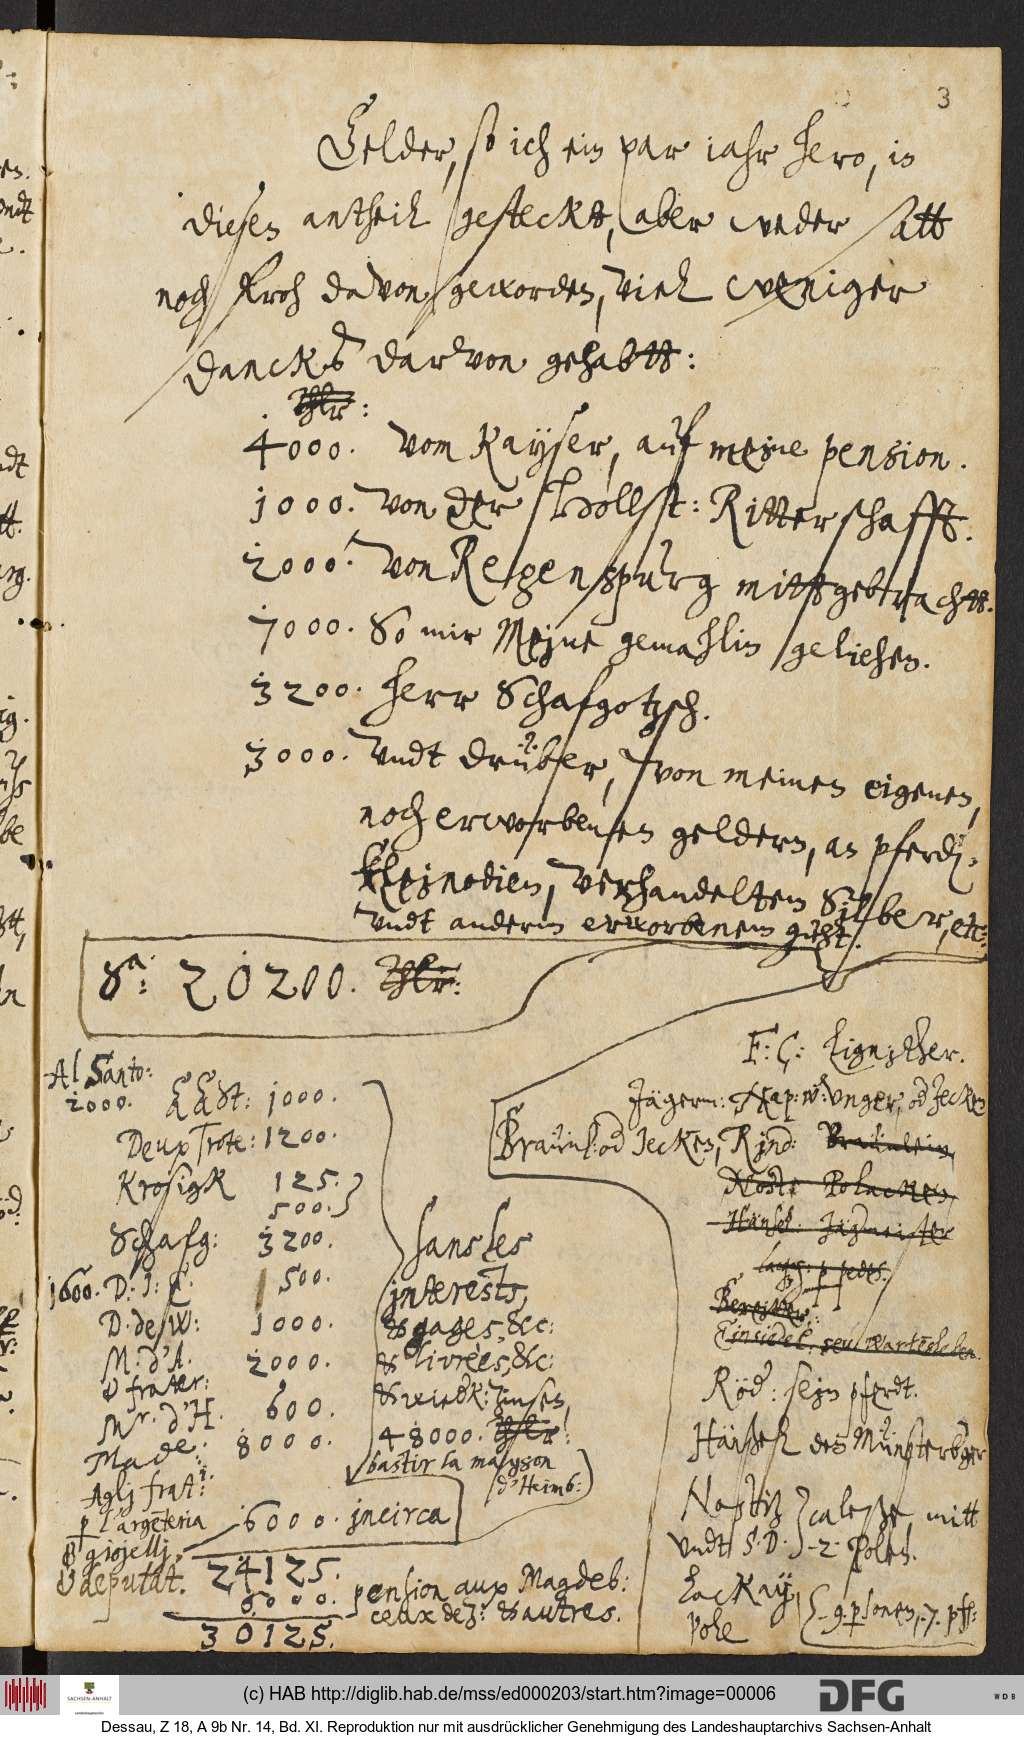 3
Gelder, so ich ein par iahr hero, in
diesen antheil gesteckt, aber weder satt
noch froh davon geworden, viel weniger
dancks darvon gehabtt:
Thlr:
4000. vom Kayser, auf meine pension.
1000. von der Hollst: Ritterschafft.
2000. von Regenspurg mittgebrachtt.
7000. So mir Meine gemahlin geliehen.
3200. Herr Schafgotzsch.
3000. Vndt drüber, von meinen eigenen,
noch erworbenen geldern, an pferdt,
Kleinodien, verhandeltem Silber, etc:
vndt anderm erworbenem guht.
Sa: 20200. Thlr:
Al Santo:
2000.
1000.
Deux Trote: 1200.
Krosigk 125.
500.
Schafg: 3200.
1600. D: J: C. 500.
D. de W: 1000.
M: d'A. 2000.
& frater:
Mr. d'H. 600.
Made: 8000.
Aglj frat:i
p l'argeteria 6000. jncirca
& giojellj.
& deputat. 24125.
6000. pension aux Magdeb:
ceux de Z: & autres.
30125.
sans les
interests,
& gages, &c:
& livrées, &c:
Zinsen,
48000. Thlr:
bastir la mayson
d'Heimb:
F: C: Ligni, ther.
Jägerm: Kap: w: Vnger, od Jecken
Braünl: od Jecken, Rind: Braunlein,
Nostz Polacken,
Hänsel: Jägmeister
lacq: p pedes.
Bereitter,
Einsidel, seu wartesleben.
Röd: sein pferdt.
Hänsel des Münsterbger
Nostitz calesse, mitt
vndt S. D. -2- Polen.
Lackay,
Pole -9. psonen, -7. pff:
(c) HAB http://diglib.hab.de/mss/ed000203/start.htm?image=00006
SACHSEN-ANHALT
DFG
WDB
Dessau, Z 18, A 9b Nr. 14, Bd. XI. Reproduktion nur mit ausdrücklicher Genehmigung des Landeshauptarchivs Sachsen-Anhalt